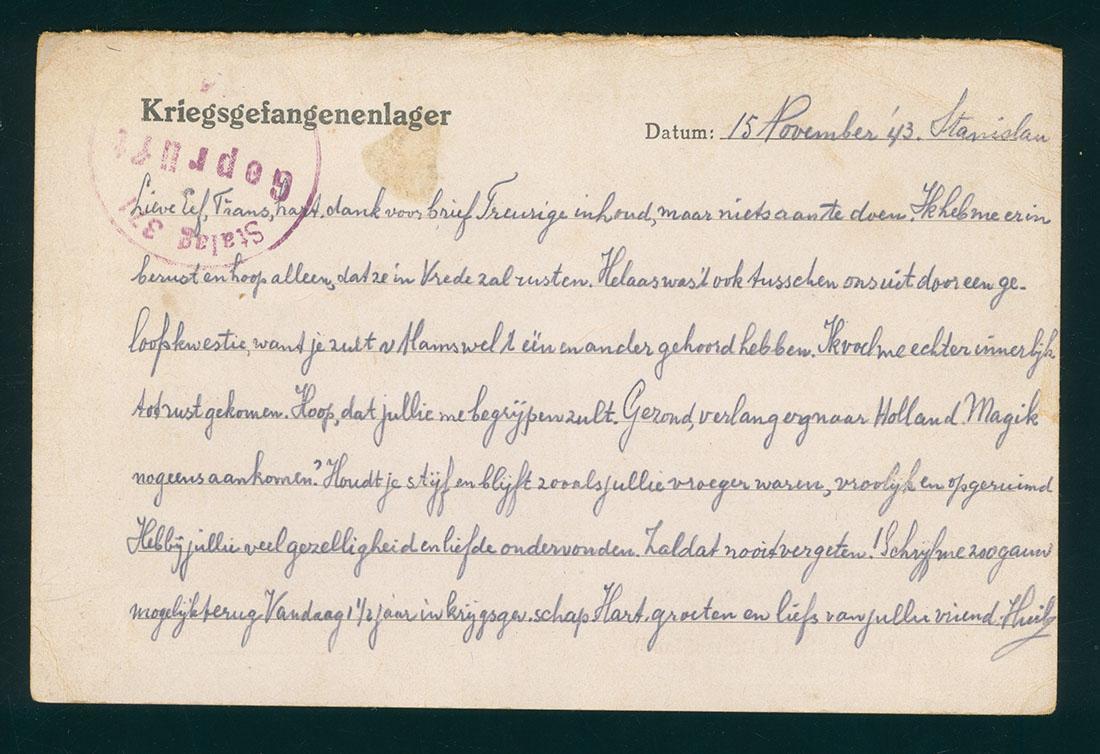 Kriegsgefangenenlager
Datum: 15 November '43. Stanislau
Geprüft
Stalag 371
Lieve Eef, Frans, hart. dank voor brief Treurige inhoud, maar niets aan te doen. Ik heb me er in
berust en hoop alleen, dat ze in Vrede zal rusten. Helaas was 't ook tusschen ons uit door een ge-
loofskwestie, want je zult v Mams wel 't één en ander gehoord hebben. Ik voel me echter innerlijk
tot rust gekomen. Hoop, dat jullie me begrijpen zult. Gezond, verlang erg naar Holland. Mag ik
nog eens aankomen? Houdt je stijf en blijft zooals jullie vroeger waren, vroolijk en opgeruimd
Heb bij jullie veel gezelligheid en liefde ondervonden. Zal dat nooit vergeten! Schrijf me zoo gauw
mogelijk terug Vandaag 1 1/2 jaar in krijgsgev. schap Hart. groeten en liefs van jullie vriend